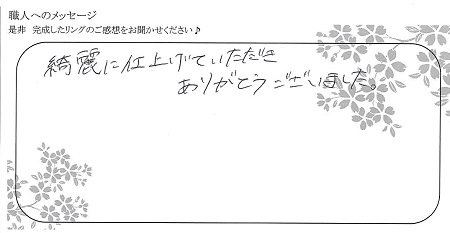 職人へのメッセージ
是非 完成したリングのご感想をお聞かせください♪
綺麗に仕上げていただき
ありがとうございました。